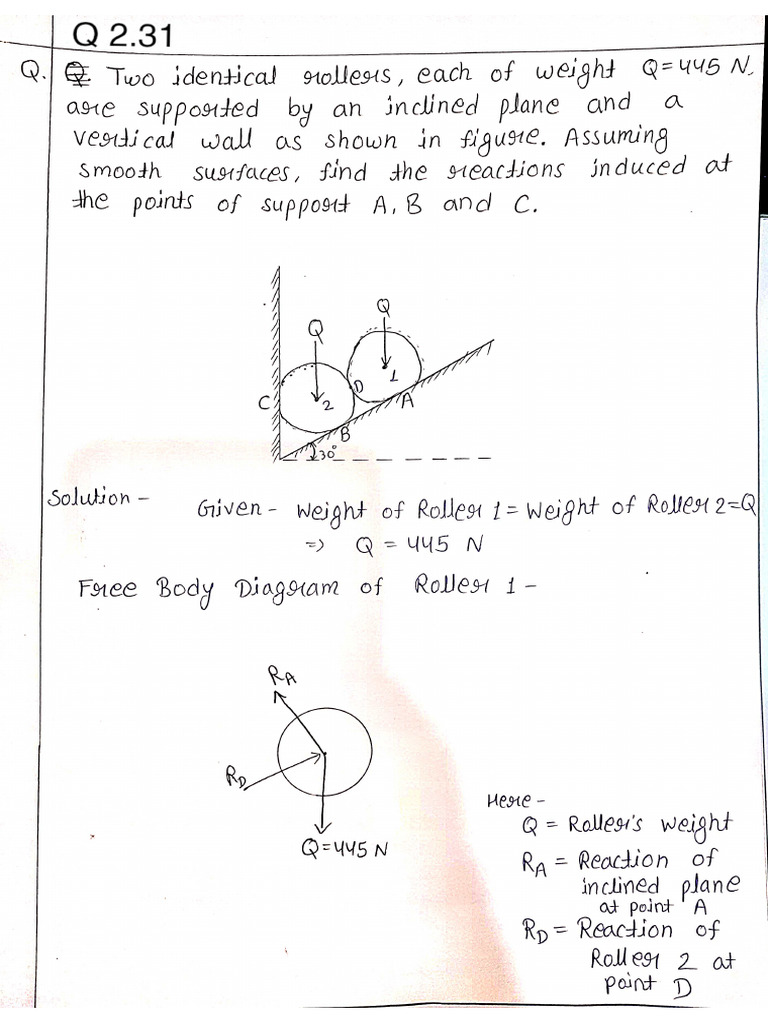 Q 2.31
Q. Two identical rollers, each of weight Q=445 N,
are supported by an inclined plane and a
vertical wall as shown in figure. Assuming
smooth surfaces, find the reactions induced at
the points of support A, B and C.
Q
Q
1
D
C
2
A
B
30°
Solution -
Given - Weight of Roller 1 = Weight of Roller 2 = Q
=> Q = 445 N
Free Body Diagram of Roller 1 -
RA
RD
Q=445 N
Here -
Q = Roller's weight
RA = Reaction of
inclined plane
at point A
RD = Reaction of
Roller 2 at
point D